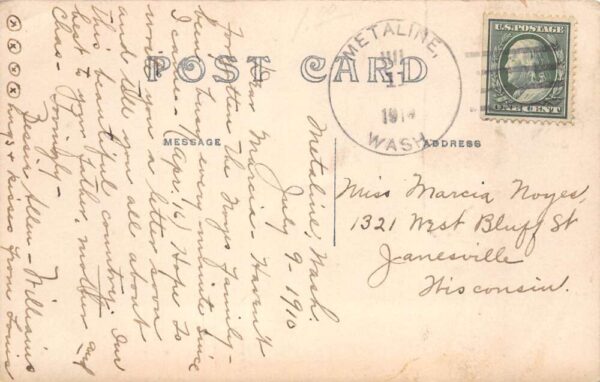 POST CARD
MESSAGE
ADDRESS
METALINE,
WASH.
U.S. POSTAGE
ONE CENT
Metaline, Wash.
July 9 - 1910
Dear Marcia - Haven't
forgotten the Noyes family -
been busy every minute since
I came - (Apr. 16) Hope to
write you a letter soon
and tell you all about
this beautiful country. Our
best to your father, mother and
Chas - Lovingly -
Allen - Williams
hugs + kisses from Louis
Miss Marcia Noyes,
1321 West Bluff St
Janesville
Wisconsin.